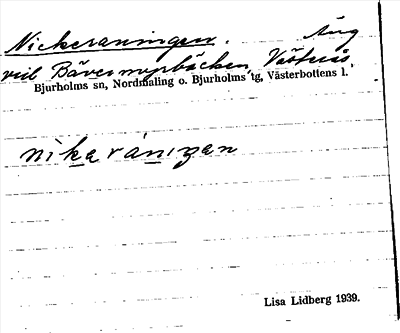 Nickeraningen. Äng
vid Bävermyrbäcken, Västerås,
Bjurholms sn, Nordmaling o. Bjurholms tg, Västerbottens l.
nikeråningen
Lisa Lidberg 1939.